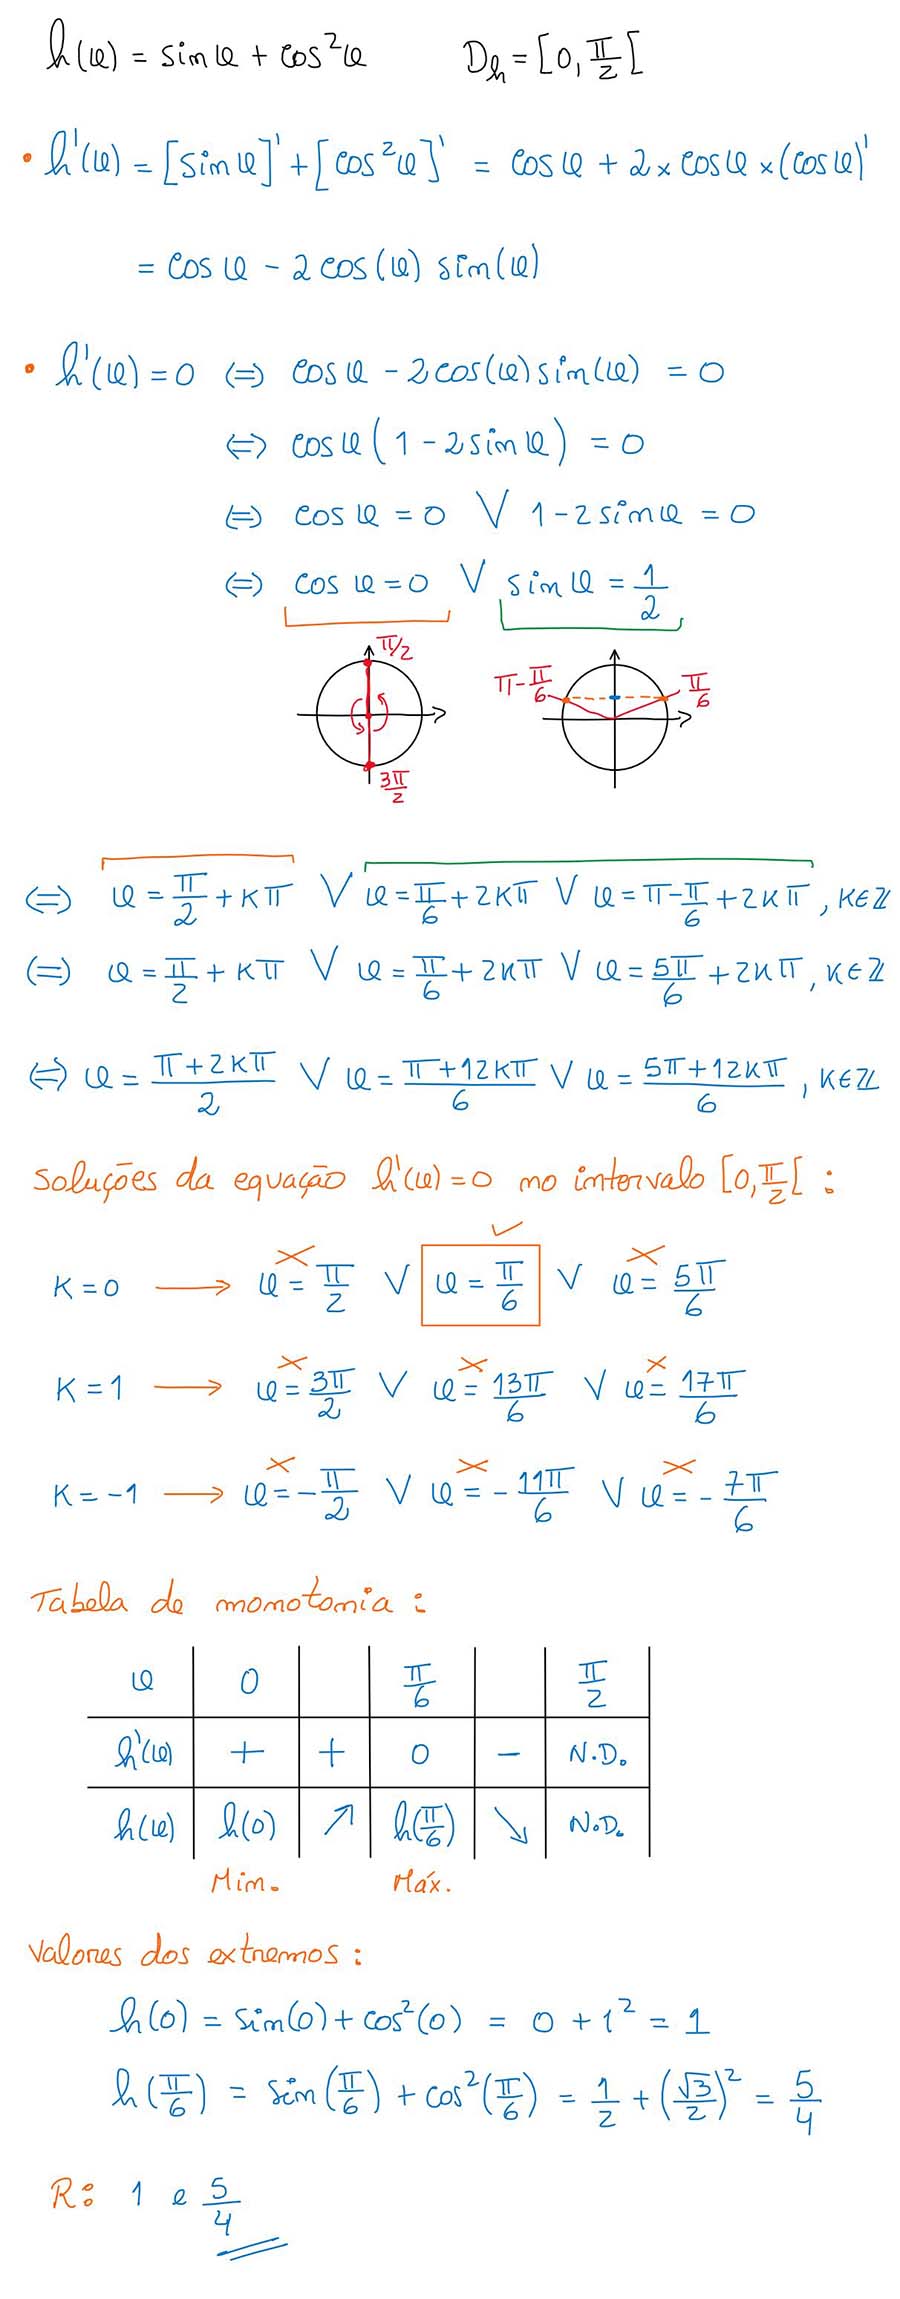 h(φ) = sin φ + cos²φ   D_h = [0, π/2[
• h'(φ) = [sin φ]' + [cos²φ]' = cos φ + 2 × cos φ × (cos φ)'
= cos φ - 2 cos(φ) sin(φ)
• h'(φ) = 0 ⇔ cos φ - 2 cos(φ) sin(φ) = 0
⇔ cos φ (1 - 2 sin φ) = 0
⇔ cos φ = 0 ∨ 1 - 2 sin φ = 0
⇔ cos φ = 0 ∨ sin φ = 1/2
π/2
π-π/6   π/6
3π/2
⇔ φ = π/2 + kπ ∨ φ = π/6 + 2kπ ∨ φ = π - π/6 + 2kπ, k∈ℤ
⇔ φ = π/2 + kπ ∨ φ = π/6 + 2kπ ∨ φ = 5π/6 + 2kπ, k∈ℤ
⇔ φ = (π+2kπ)/2 ∨ φ = (π+12kπ)/6 ∨ φ = (5π+12kπ)/6, k∈ℤ
Soluções da equação h'(φ) = 0 no intervalo [0, π/2[ :
K = 0 → φ = π/2 ∨ φ = π/6 ∨ φ = 5π/6
K = 1 → φ = 3π/2 ∨ φ = 13π/6 ∨ φ = 17π/6
K = -1 → φ = -π/2 ∨ φ = -11π/6 ∨ φ = -7π/6
Tabela de monotonia :
φ   0   π/6   π/2
h'(φ)   +   +   0   -   N.D.
h(φ)   h(0)   ↗   h(π/6)   ↘   N.D.
Min.   Máx.
Valores dos extremos :
h(0) = sin(0) + cos²(0) = 0 + 1² = 1
h(π/6) = sin(π/6) + cos²(π/6) = 1/2 + (√3/2)² = 5/4
R: 1 e 5/4